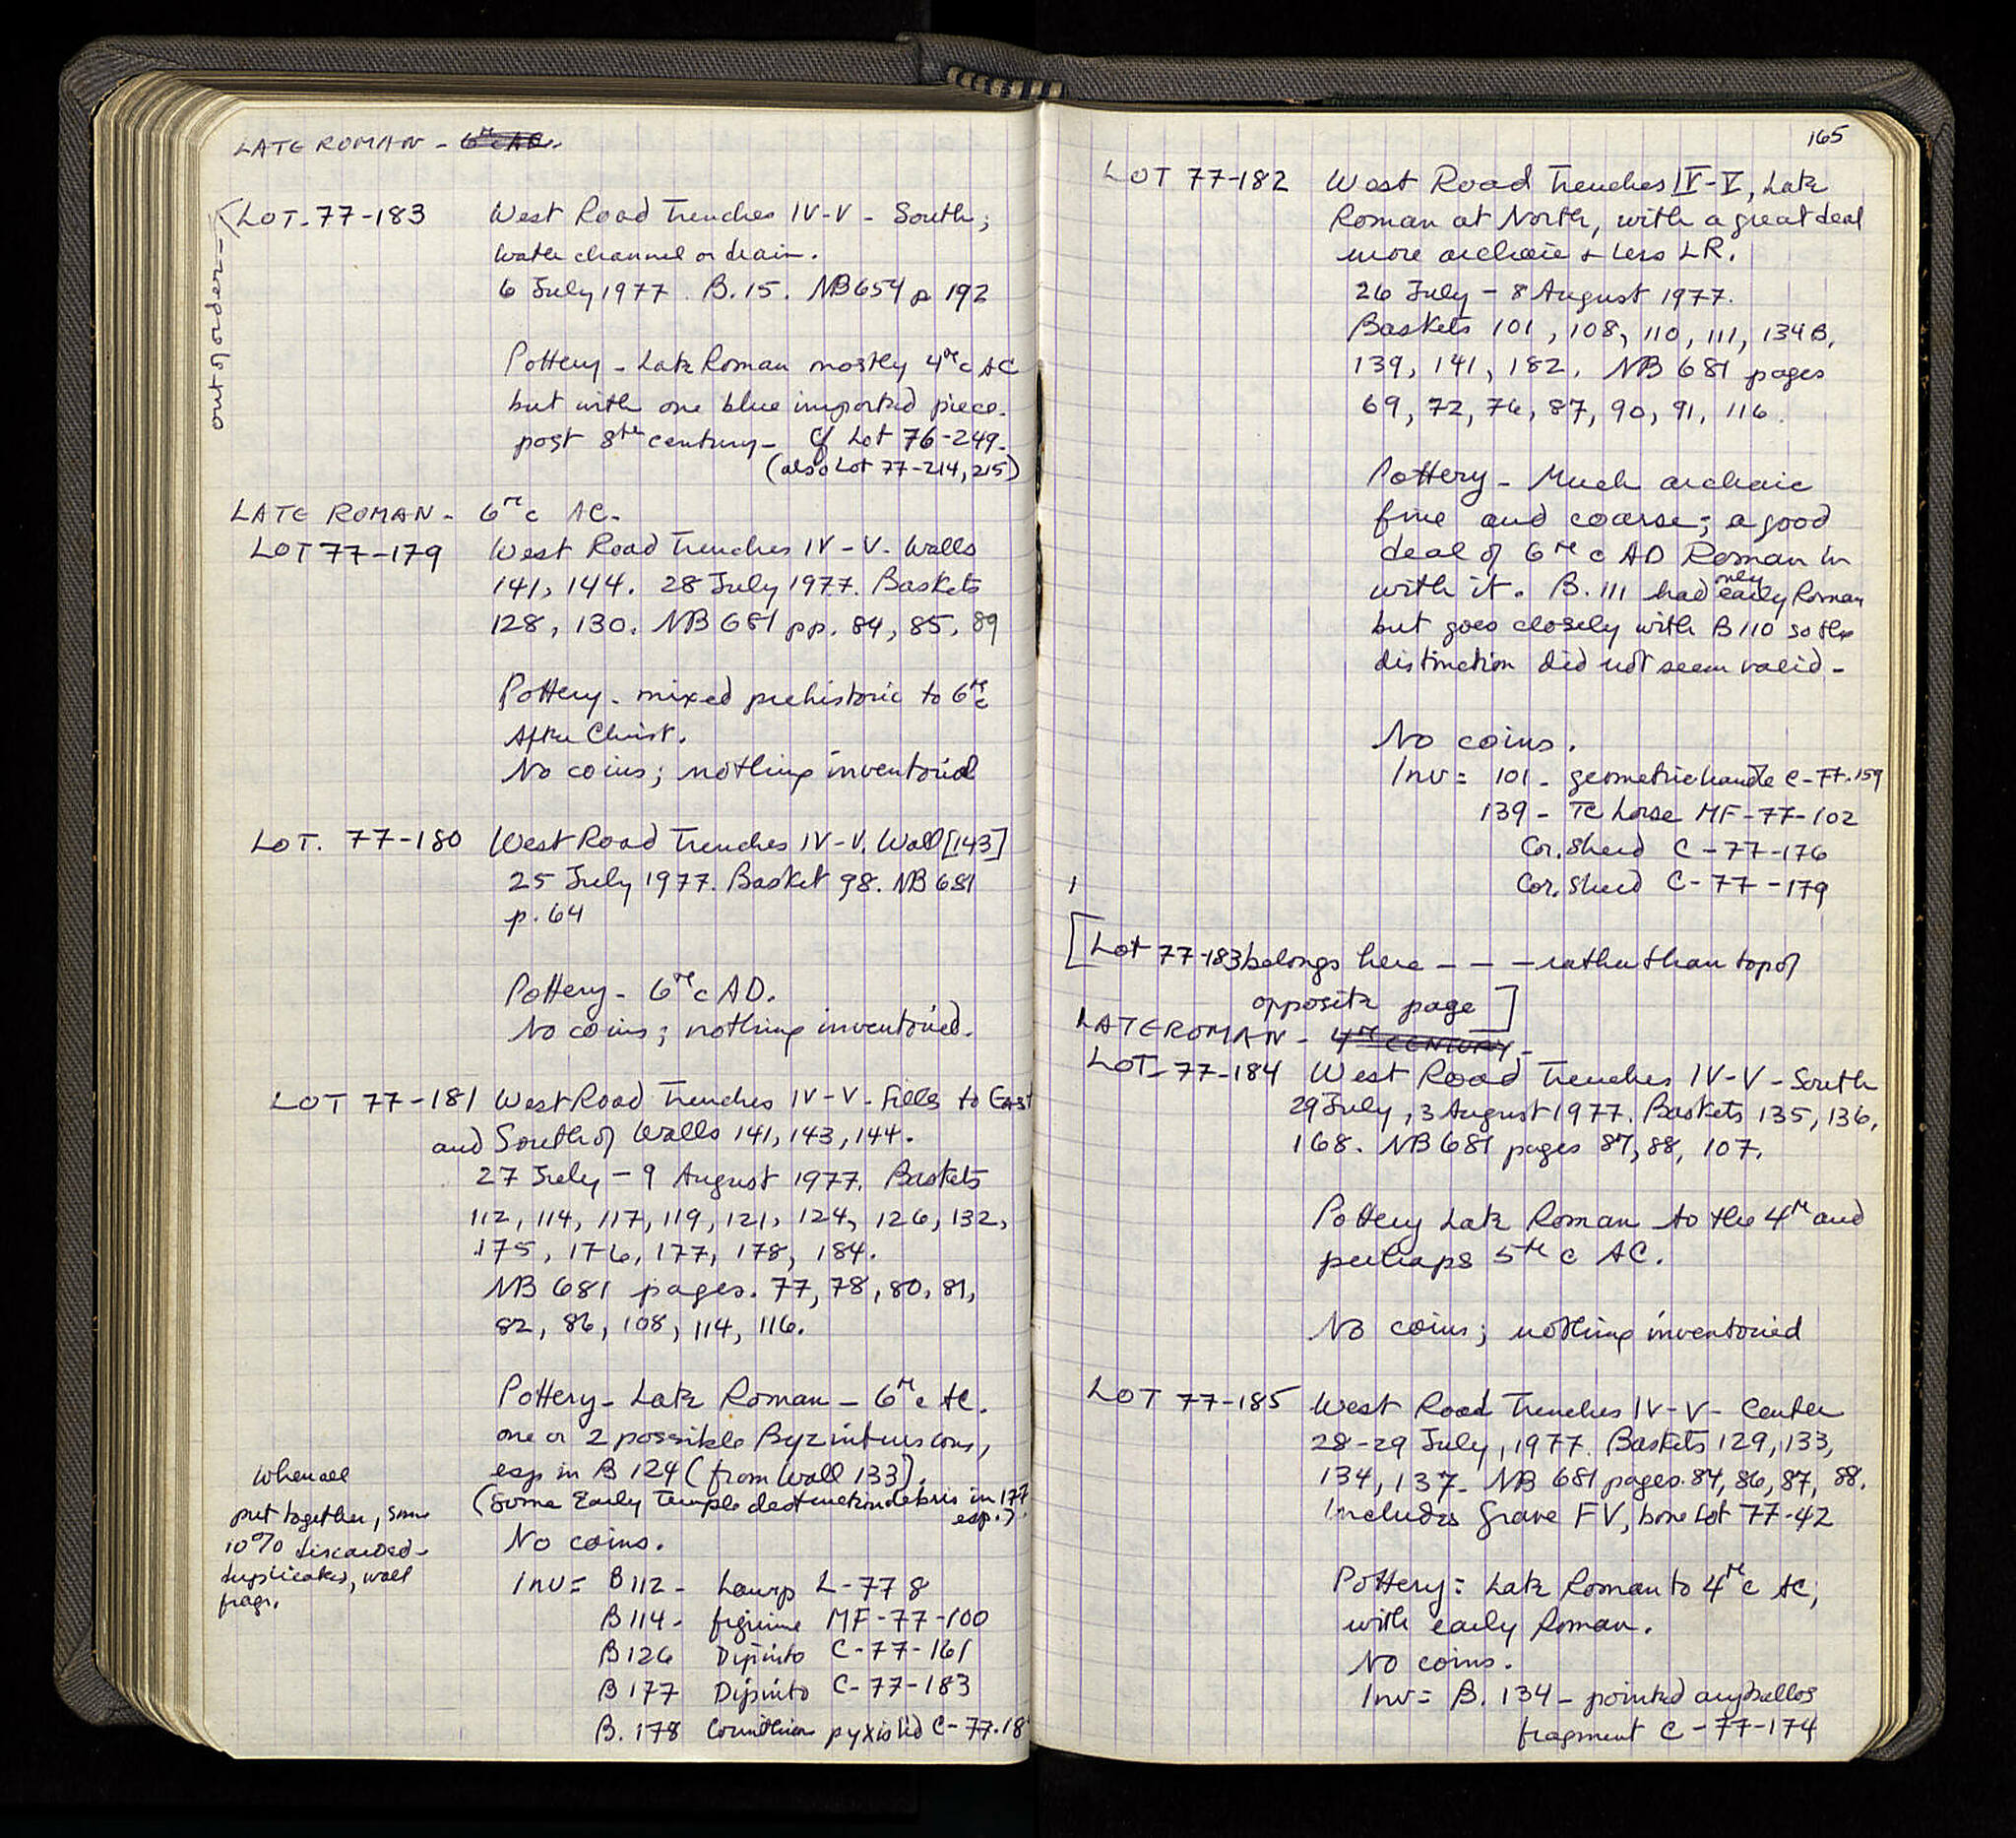 LATE ROMAN - 6th c AD.
out of order -
(LOT. 77-183 West Road Trenches IV-V - South;
water channel or drain.
6 July 1977. B. 15. NB 654 p 192
Pottery - Late Roman mostly 4th c AC
but with one blue imported piece.
post 8th century - cf Lot 76-249.
(also Lot 77-214, 215)
LATE ROMAN - 6th c AC.
LOT 77-179 West Road Trenches IV-V. Walls
141, 144. 28 July 1977. Baskets
128, 130. NB 681 pp. 84, 85, 89
Pottery - mixed prehistoric to 6th c
After Christ.
No coins; nothing inventoried
LOT. 77-180 West Road Trenches IV-V. Wall [143]
25 July 1977. Basket 98. NB 681
p. 64
Pottery - 6th c AD.
No coins; nothing inventoried.
LOT 77-181 West Road Trenches IV-V - Fills to East
and South of Walls 141, 143, 144.
27 July - 9 August 1977. Baskets
112, 114, 117, 119, 121, 124, 126, 132,
175, 176, 177, 178, 184.
NB 681 pages. 77, 78, 80, 81,
82, 86, 108, 114, 116.
Pottery - Late Roman - 6th c AC.
one or 2 possible Byz intrusions,
esp in B 124 (from Wall 133).
(Some Early Temple destruction debris in 177
esp.).
When all
put together, some
10% discarded -
duplicates, wall
frags.
No coins.
Inv = B 112 - Lamp L-77 8
B 114 - figurine MF-77-100
B 126 Dipinto C-77-161
B 177 Dipinto C-77-183
B. 178 Corinthian pyxis lid C-77-18
165
LOT 77-182 West Road Trenches IV-V, Late
Roman at North, with a great deal
more archaic & less LR.
26 July - 8 August 1977.
Baskets 101, 108, 110, 111, 134B,
139, 141, 182. NB 681 pages
69, 72, 76, 87, 90, 91, 116.
Pottery - Much archaic
fine and coarse; a good
deal of 6th c AD Roman in
with it. B. 111 had only early Roman
but goes closely with B 110 so the
distinction did not seem valid -
No coins.
Inv = 101 - geometric handle C-77-159
139 - TC horse MF-77-102
Cor. Sherd C-77-176
Cor. Sherd C-77-179
[Lot 77-183 belongs here - - - rather than top of
opposite page]
LATE ROMAN - 4th CENTURY -
LOT - 77-184 West Road Trenches IV-V - South
29 July, 3 August 1977. Baskets 135, 136,
168. NB 681 pages 87, 88, 107.
Pottery Late Roman to the 4th and
perhaps 5th c AC.
No coins; nothing inventoried
LOT 77-185 West Road Trenches IV-V - Center
28-29 July, 1977. Baskets 129, 133,
134, 137. NB 681 pages. 84, 86, 87, 88.
Includes Grave FV, bone Lot 77-42
Pottery: Late Roman to 4th c AC,
with early Roman.
No coins.
Inv = B. 134 - pointed aryballos
fragment C-77-174